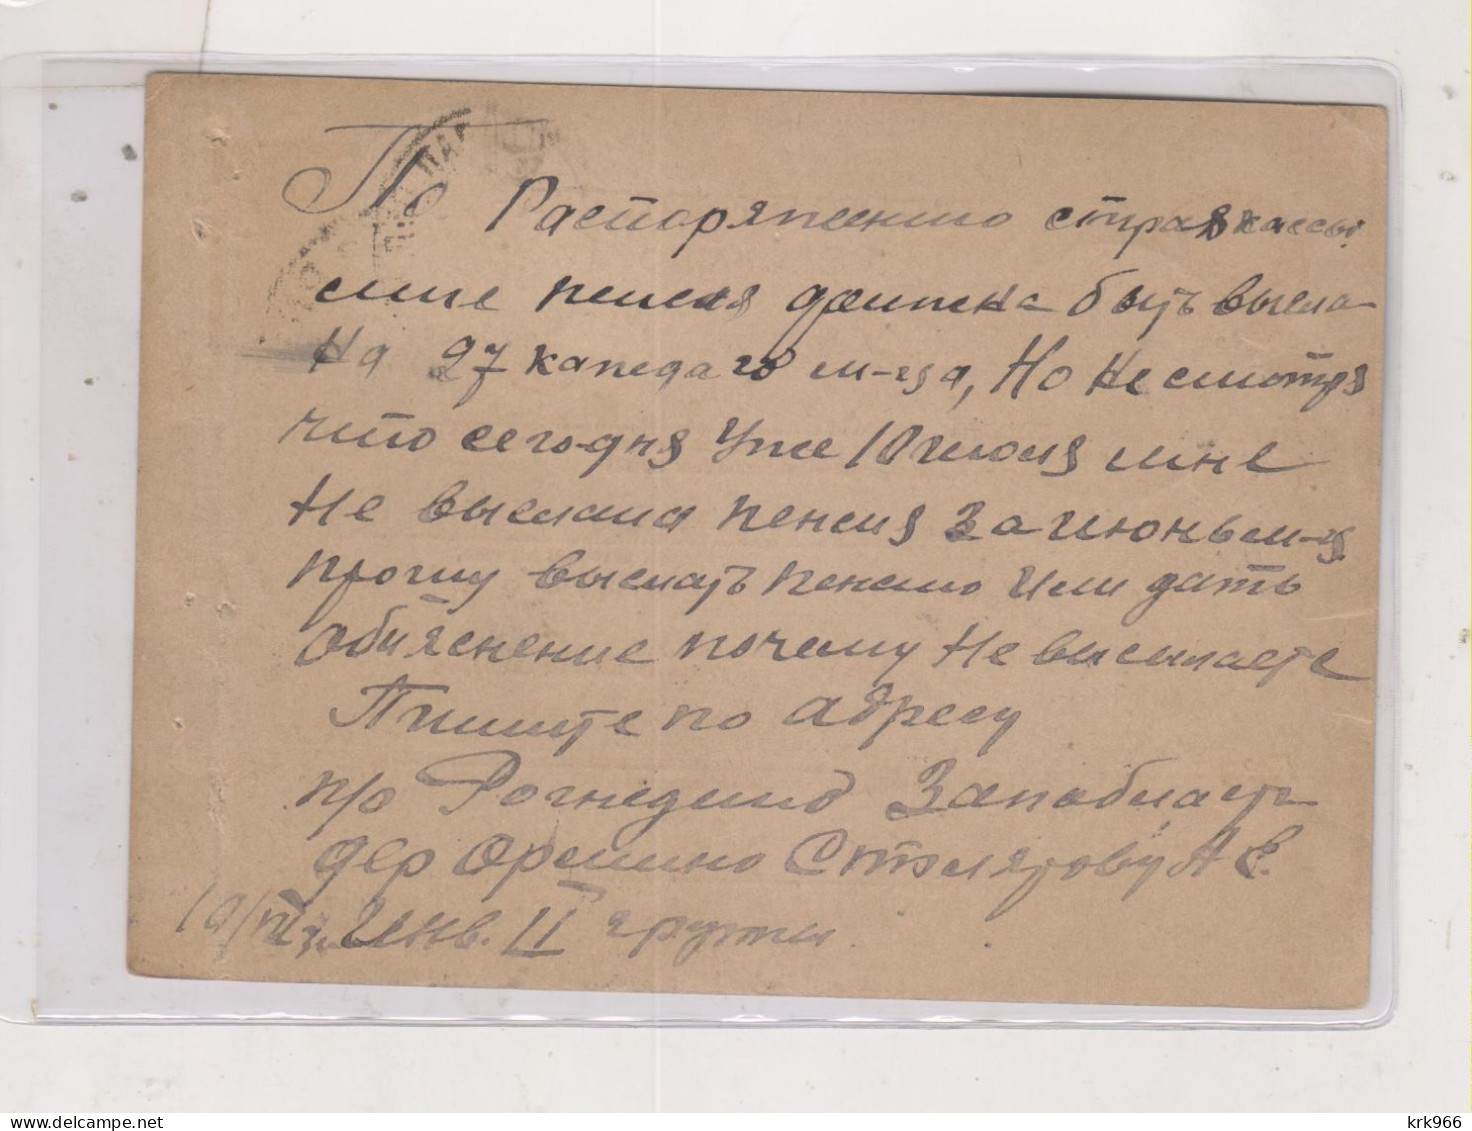 По Распоряжению страхкассы
мне пенсия должна быть высла-
На 27 каждаго м-ца, Но Не смотря
что сегодня Уже 10 июля мне
Не выслана пенсия За июнь м-ц.
прошу выслать пенсию Или дать
обияснение почему Не высылаете
Пишите по адресу
п/о Рогнедино Запобласт-
дер Орешино А Е.
10/VII Инв. II группы
krk966